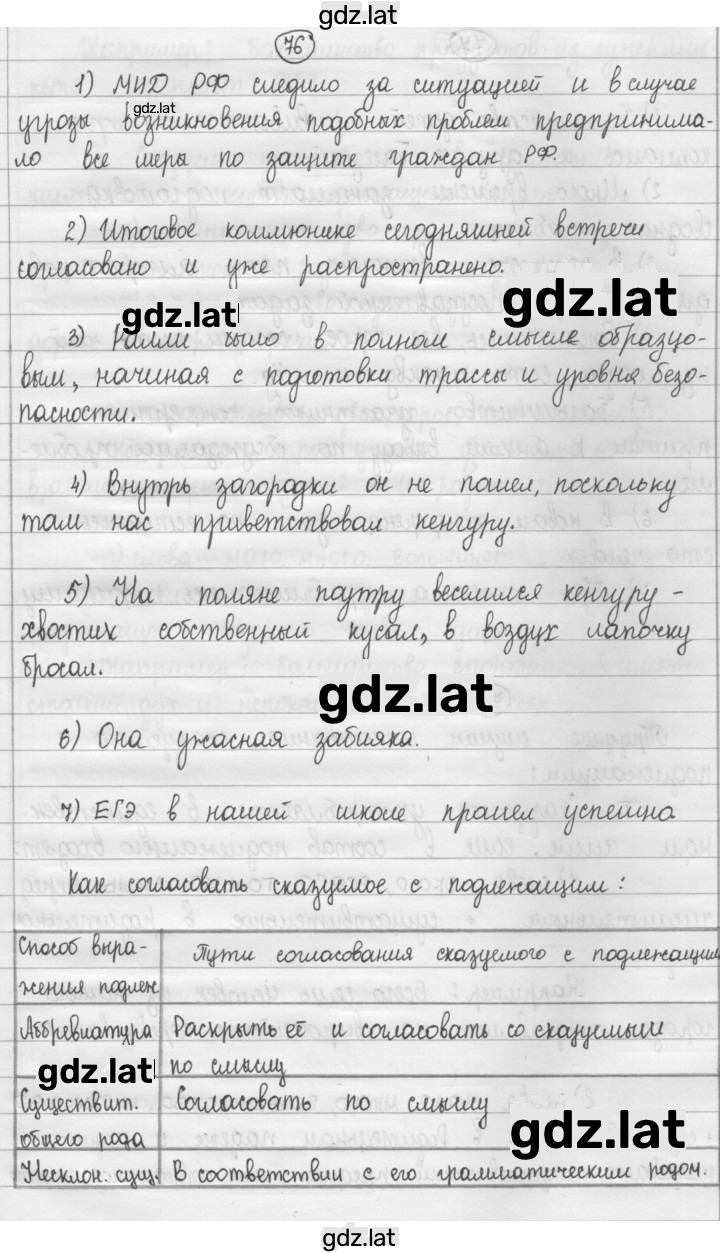 gdz.lat
76
1) МИД РФ следило за ситуацией и в случае
gdz.lat
угрозы возникновения подобных проблем предпринима-
ло все меры по защите граждан РФ.
2) Итоговое коммюнике сегодняшней встречи
согласовано и уже распространено.
gdz.lat
gdz.lat
3) Ралли было в полном смысле образцо-
вым, начиная с подготовки трассы и уровня безо-
пасности.
4) Внутрь загородки он не пошел, поскольку
там нас приветствовал кенгуру.
5) На поляне поутру веселился кенгуру -
хвостик собственный кусал, в воздух лапочку
бросал.
gdz.lat
6) Она ужасная забияка.
7) ЕГЭ в нашей школе прошел успешна
Как согласовать сказуемое с подлежащим:
Способ выра-
жения подлеж.
Пути согласования сказуемого с подлежащим
Аббревиатура
Раскрыть её и согласовать со сказуемым
по смыслу
gdz.lat
Существит.
общего рода
Согласовать по смыслу
gdz.lat
Несклон. сущ.
В соответствии с его грамматическим родом.
gdz.lat